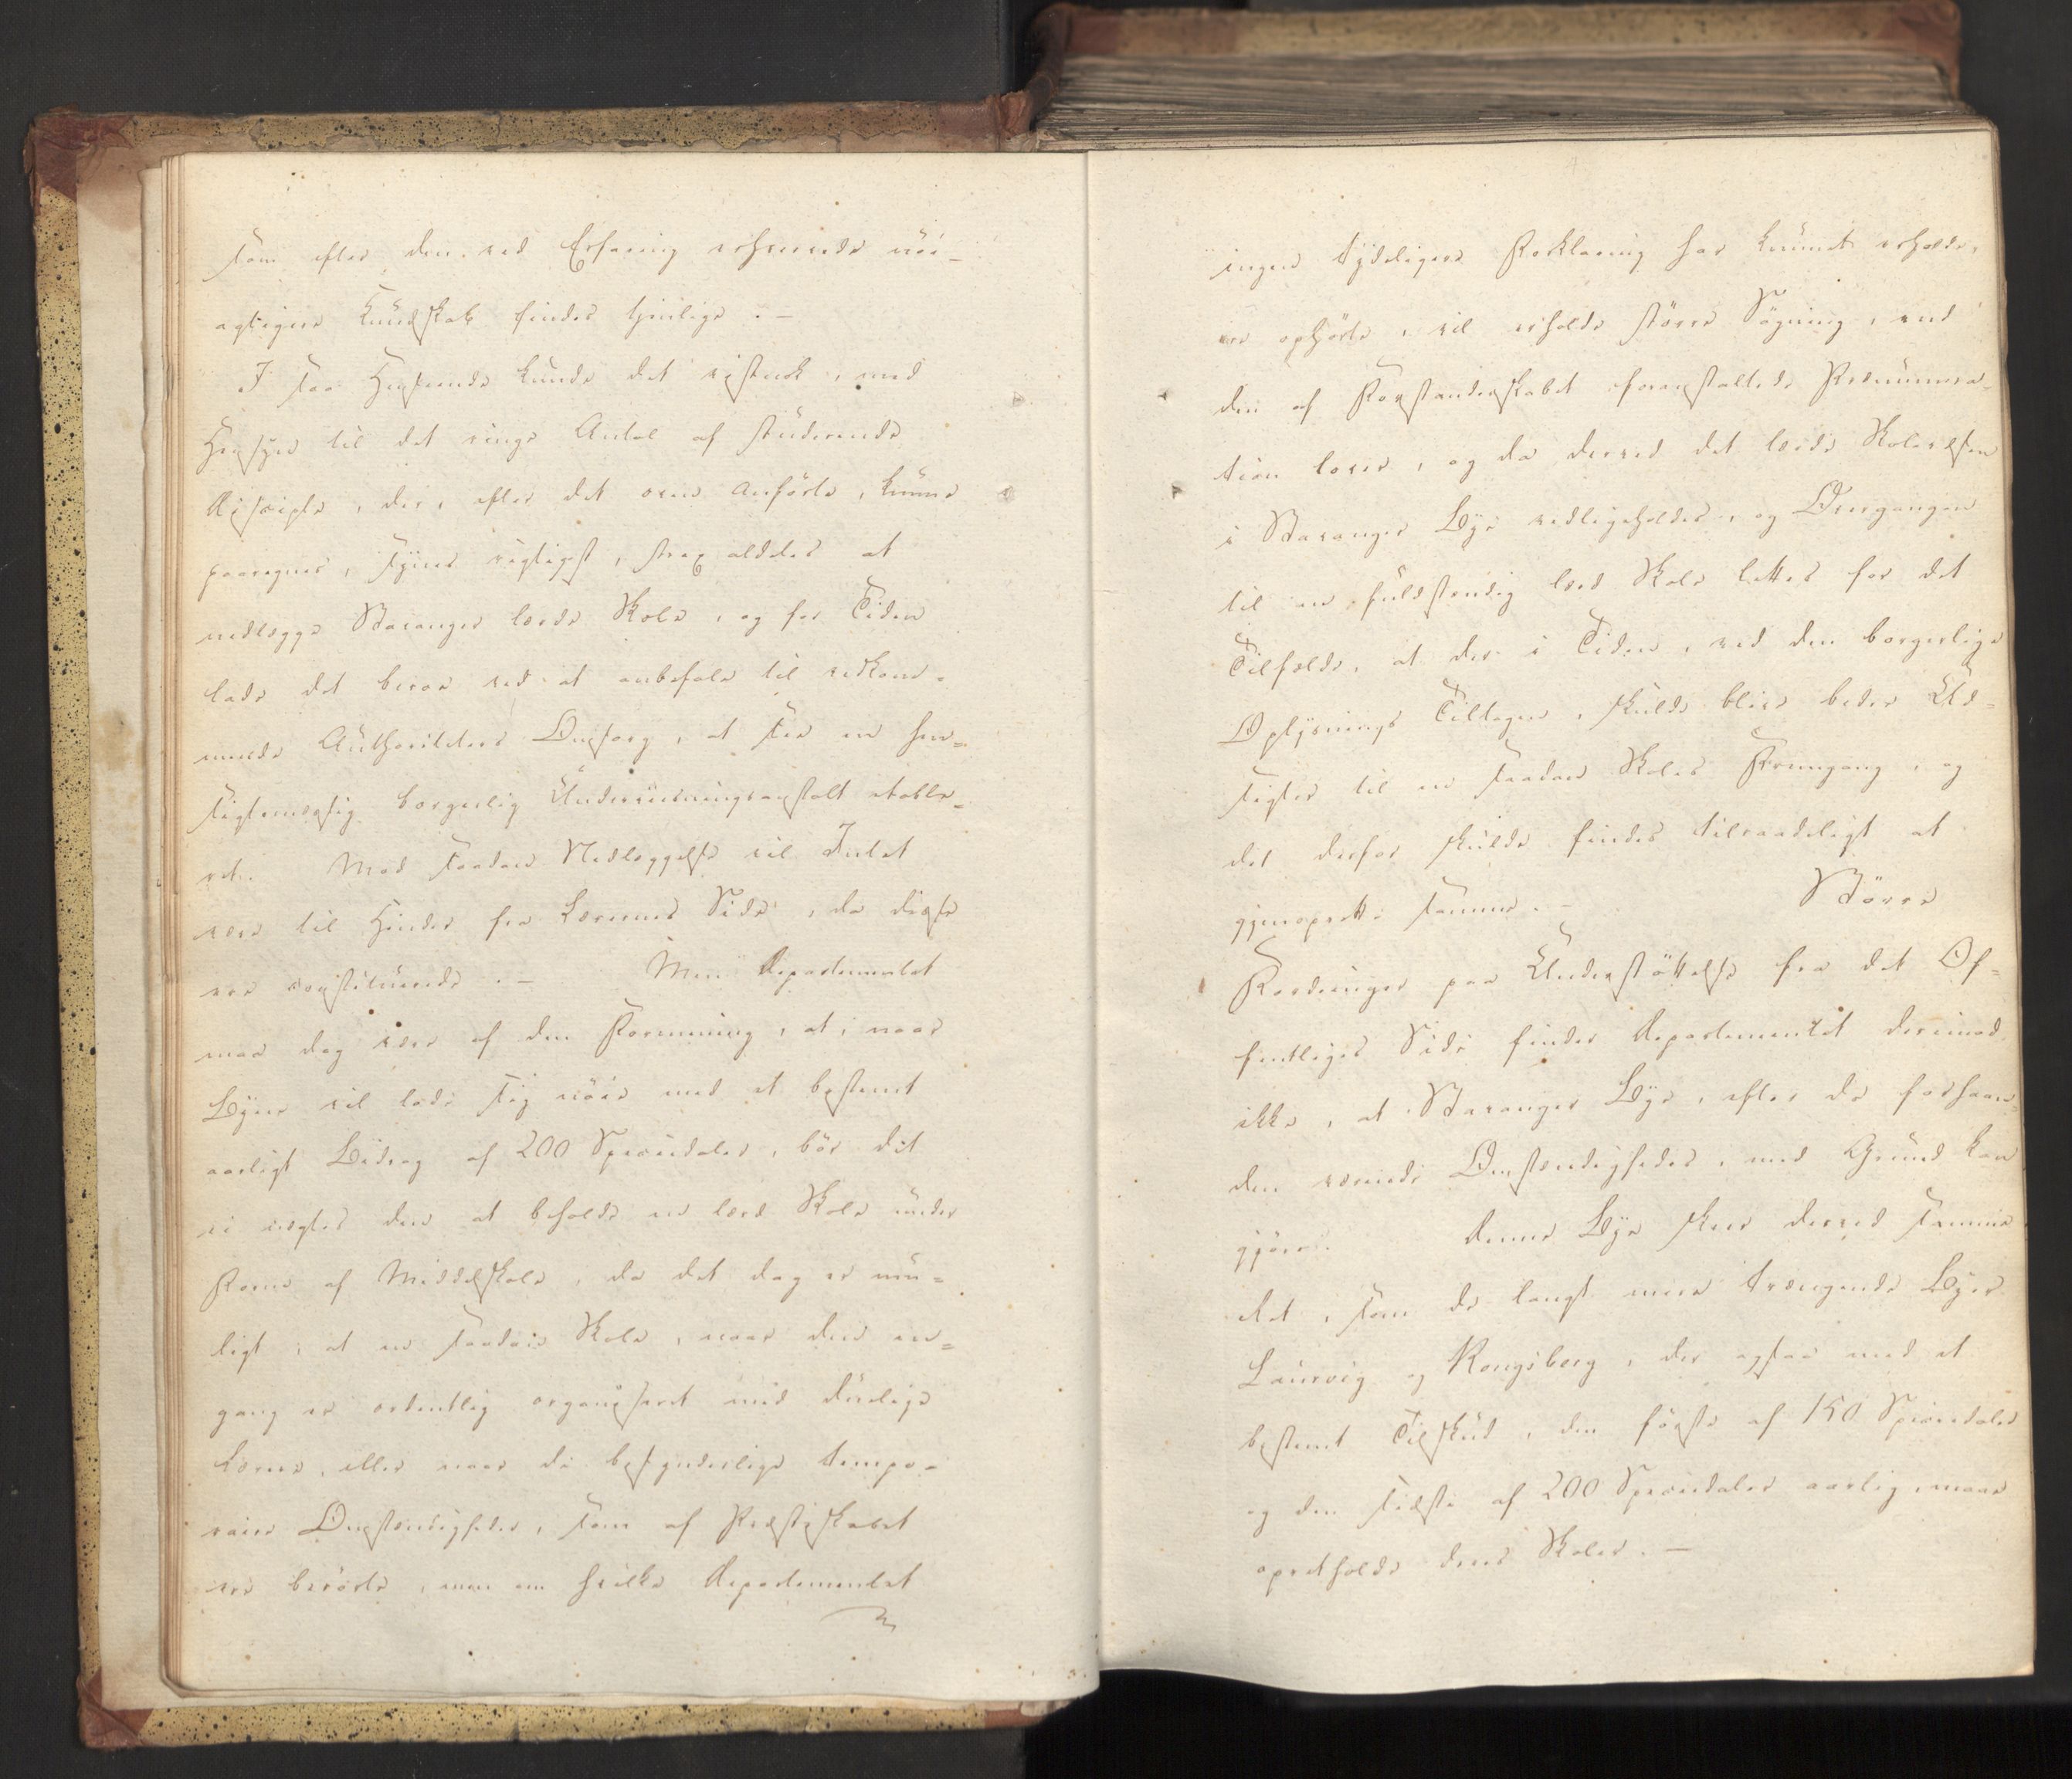 som efter den ved Erfaring erhvervede nöi-
agtigere Kundskab findes tjenlige. –
I saa Henseende kunde det vistnok, med
Hensyn til det ringe Antal af studerende
Disciple, der, efter det oven Anförte, kunne
paaregnes, synes rigtigst, strax aldeles at
nedlægge Stavanger lærde Skole, og for Tiden
lade det beroe ved at anbefale til vedkom-
mende Authoriteters Omsorg, at see en hen-
sigtsmæssig borgerlig Underviisningsanstalt etable-
ret. Mod saadan Nedlæggelse vil Intet
være til Hinder fra Lærernes Side, da disse
ere constituerede. – Men Departementet
maa dog være af den Formening, at, naar
Byen vil lade sig nöie med et bestemt
aarligt Bidrag af 200 Speciedaler, bör det
ei nægtes den at beholde en lærd Skole under
Form af Middelskole, da det dog er mu-
ligt, at en saadan Skole, naar den en-
gang er ordentlig organiseret med duelige
Lærere, eller naar de besynderlige tempo-
raire Omstændigheder, som af Bestyrskabet
ere berörte, men om hvilke Departementet
ingen tydeligere Forklaring har kunnet erholde,
ere ophörte, vil erholde större Sögning, end
den af Forstanderskabet foranstaltede Prænumera-
tion lover, og da derved det lærde Skolevæsen
i Stavanger Bye vedligeholdes, og Overgangen
til en fuldstændig lærd Skole lettes for det
Tilfælde, at der i Tiden, ved den borgerlige
Oplysnings Tiltagen, skulde blive bedre Ud-
sigter til en saadan Skoles Fremgang, og
det derfor skulde findes tilraadeligt at
gjenoprette samme. – Större
Fordringer paa Understöttelse fra det Of-
fentliges Side finder Departementet derimod
ikke, at Stavanger Bye, efter de forhaan-
den værende Omstændigheder, med Grund kan
gjöre. Denne Bye skeer derved samme
Ret, som de langt mere trængende Byer
Laurvig og Kongsberg, der ogsaa med et
bestemt Tilskud, den förste af 150 Speciedaler
og den sidste af 200 Speciedaler aarlig, maae
opretholde deres Skoler. –